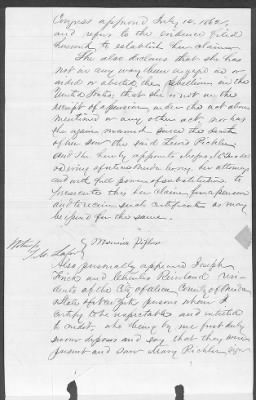 Congress approved July 14, 1862,
and refers to the evidence filed
herewith to establish her claim
She also declares that she has
not in any way been engaged in or
aided or abetted the rebellion in the
United States, that she is not in the
receipt of a pension under the act above
mentioned or any other act, nor has
she again married since the death
of her son the said Lewis Pickler
and she hereby appoints
of her attorney
and with full power of substitution to
prosecute this her claim for a pension
and to receive such certificate as may
be issued for the same.
Also personally appeared Joseph
and Charles Reinland resi-
dents of the City of Utica County of Oneida
State of New York persons whom I
certify to be respectable and entitled
to credit, who being by me first duly
sworn depose and say that they were
present and saw Mary Pickler sign